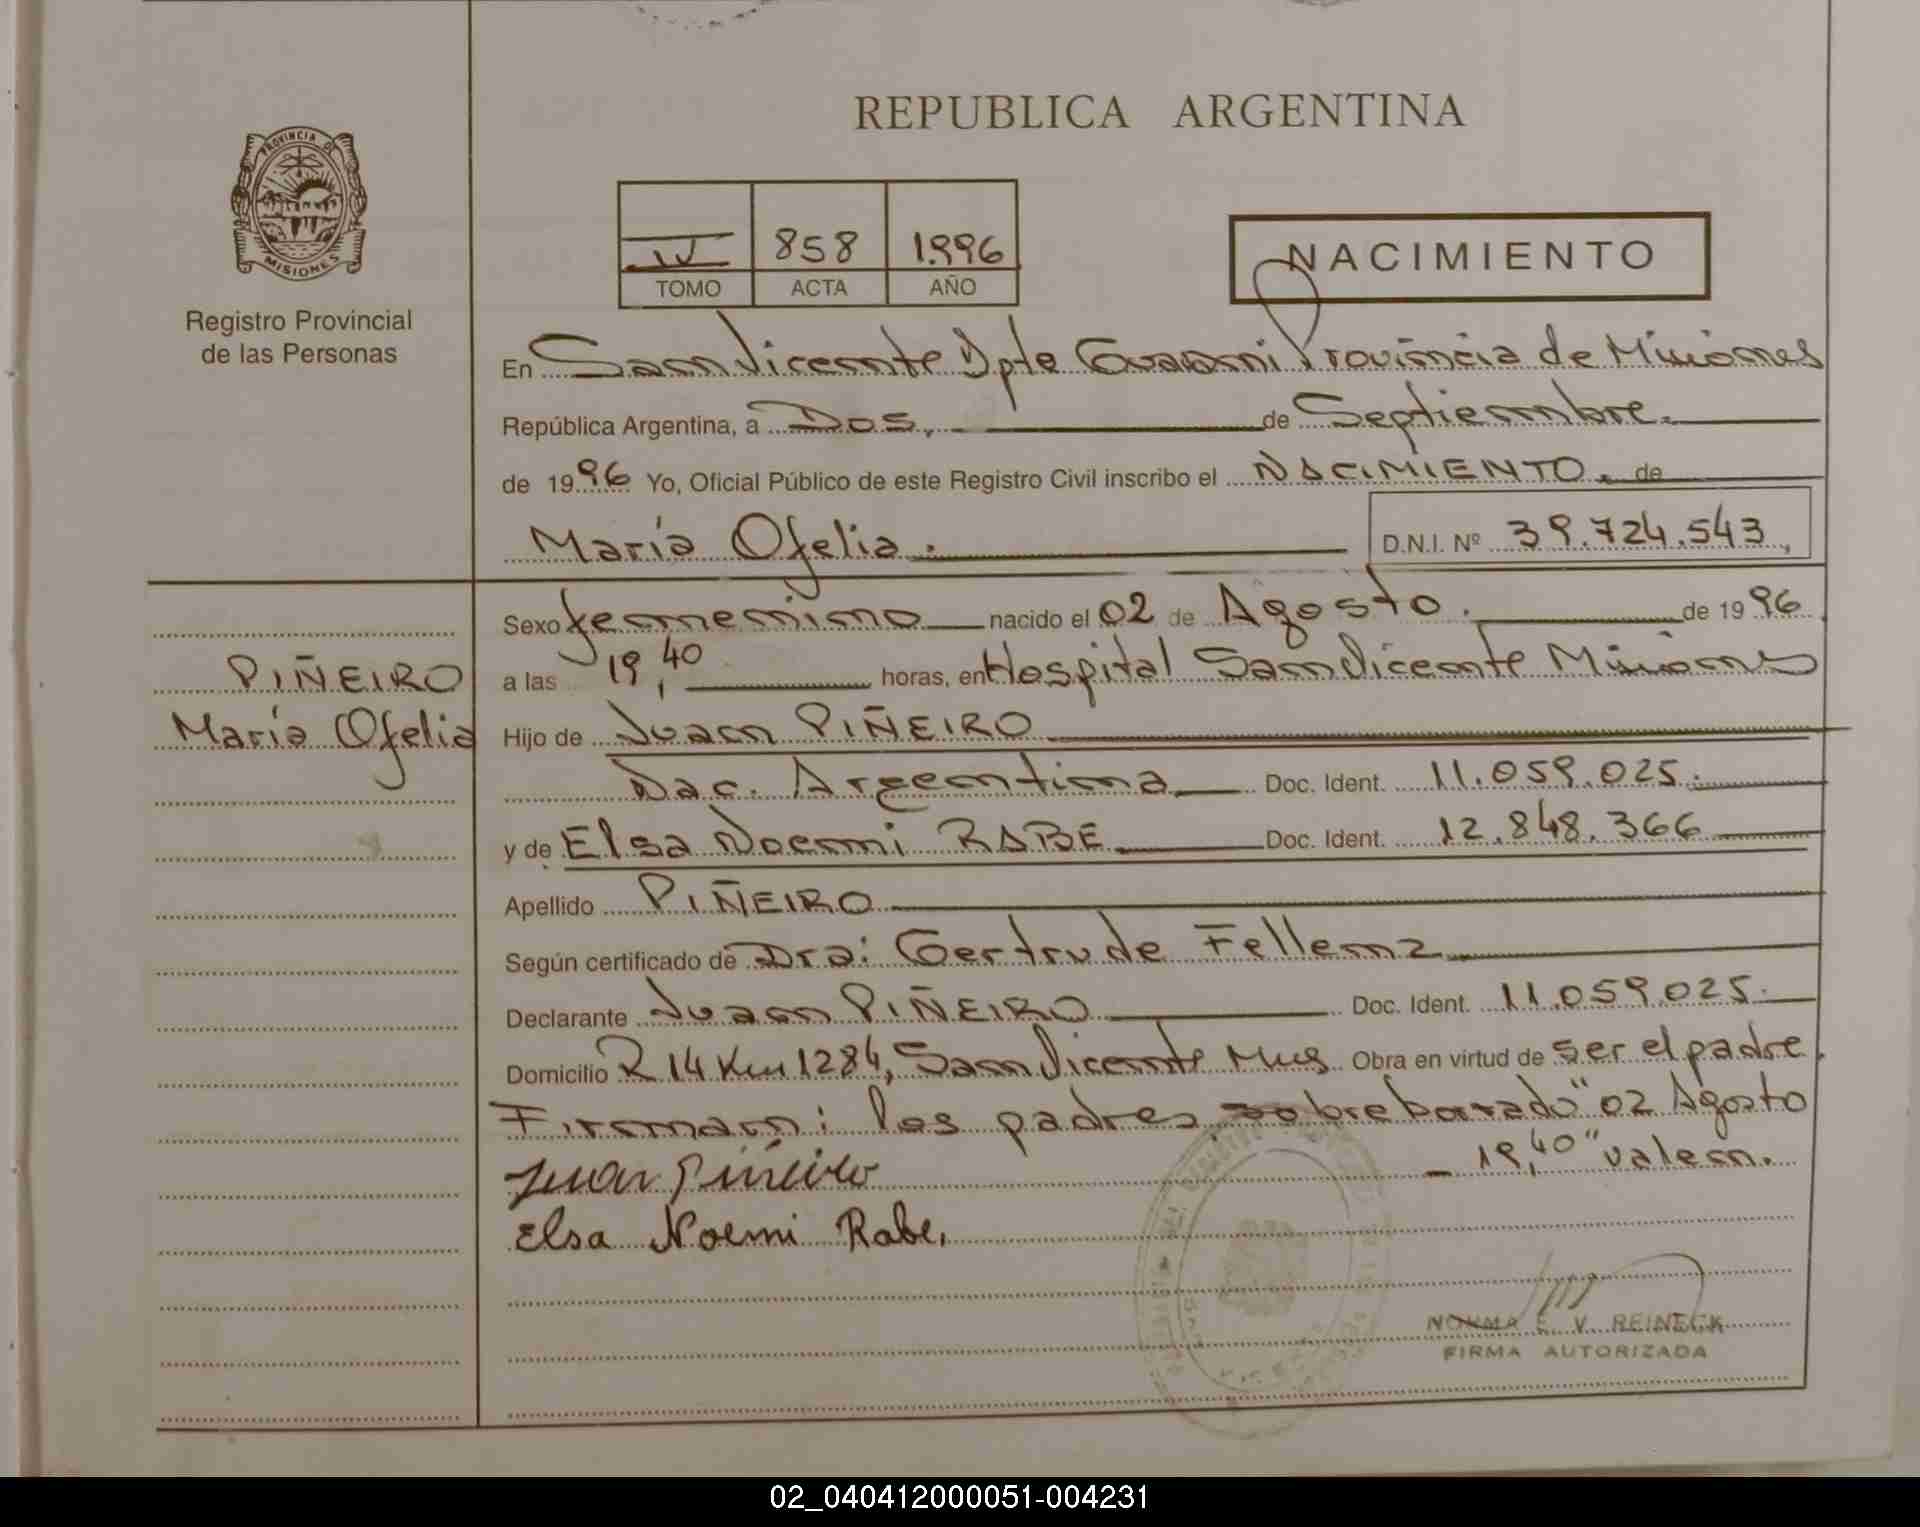 REPUBLICA ARGENTINA
PROVINCIA DE
MISIONES
Registro Provincial
de las Personas
858 1996
TOMO ACTA AÑO
NACIMIENTO
En San Vicente Dpte Guaraní Provincia de Misiones
República Argentina, a Dos, de Septiembre.
de 1996 Yo, Oficial Público de este Registro Civil inscribo el NACIMIENTO. de
María Ofelia. D.N.I. Nº 39.724.543,
Sexo femenino nacido el 02 de Agosto. de 1996
PIÑEIRO
María Ofelia
a las 19,40 horas, en Hospital San Vicente Misiones
Hijo de Juan PIÑEIRO
Nac. Argentina Doc. Ident. 11.059.025.
y de Elsa Noemi RABE Doc. Ident. 12.848.366
Apellido PIÑEIRO
Según certificado de Dra: Gertrude Fellenz
Declarante Juan PIÑEIRO Doc. Ident. 11.059.025.
Domicilio R 14 Km 1284, San Vicente Mnes Obra en virtud de ser el padre.
Firman: los padres, sobreborrado "02 Agosto
19,40" valen.
Juan Piñeiro
Elsa Noemi Rabe,
NORMA E. V. REINECK
FIRMA AUTORIZADA
02_040412000051-004231